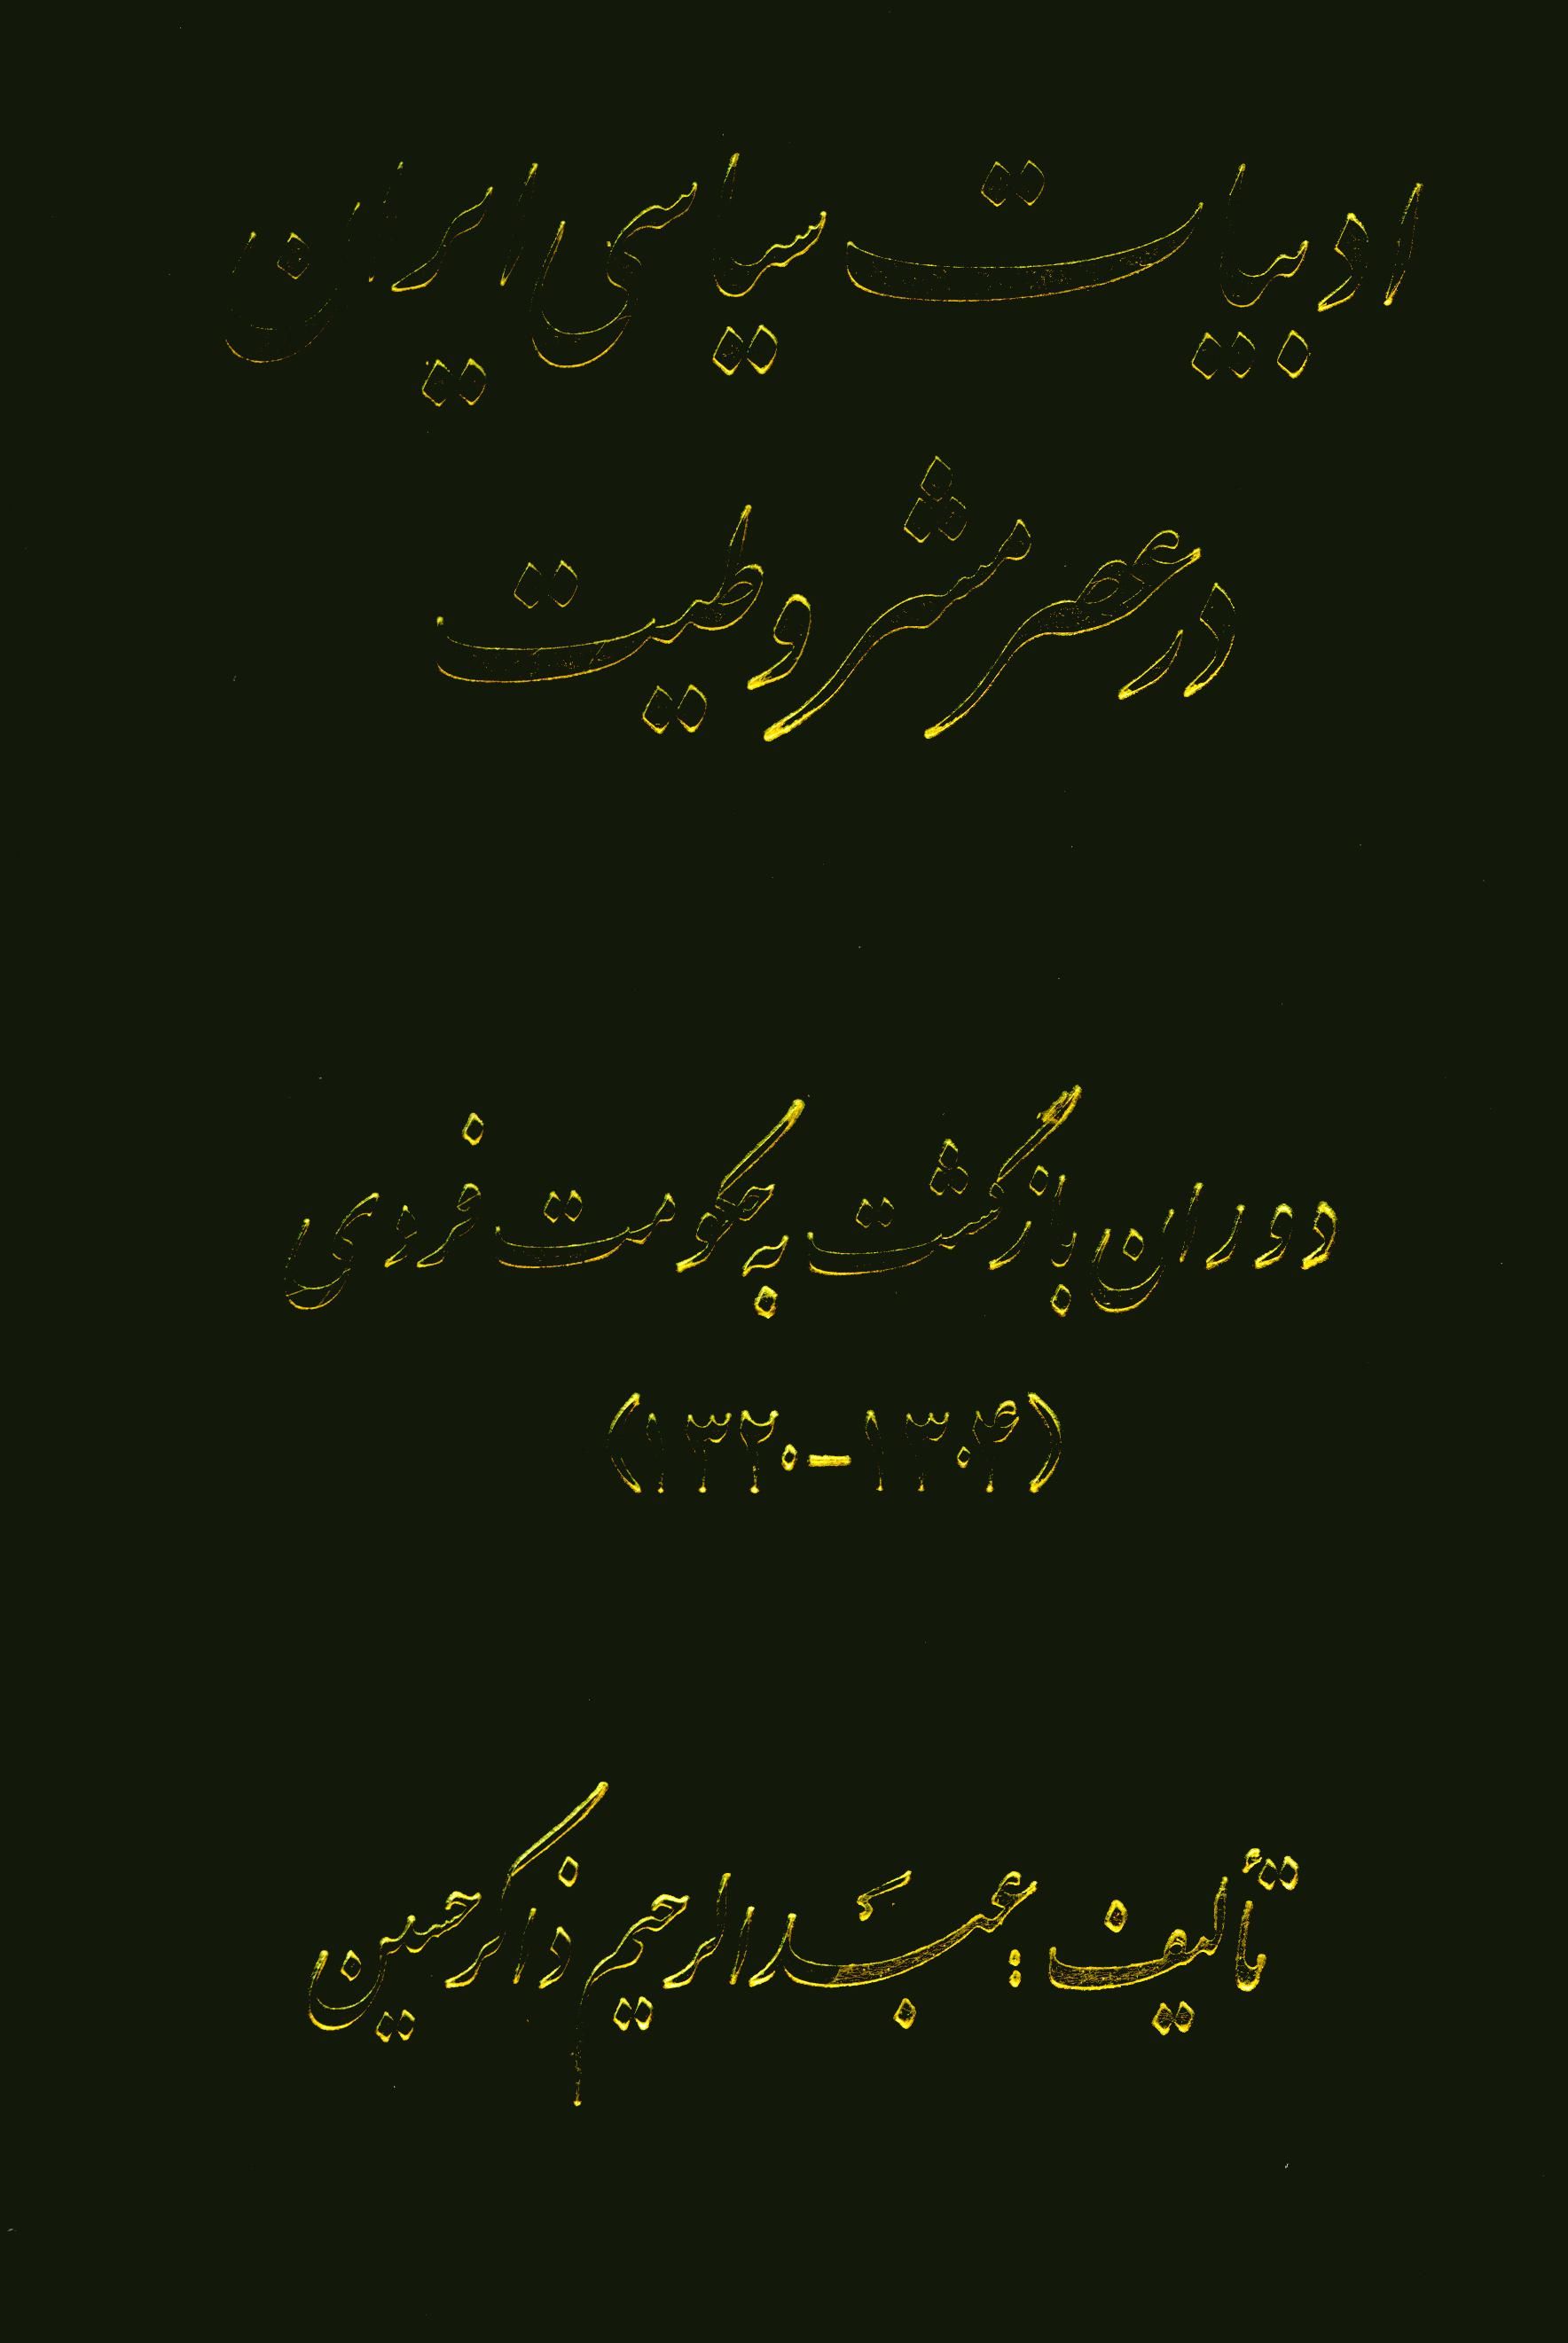 ادبیات سیاسی ایران
در عصر مشروطیت
دوران بازگشت به حکومت فردی
(۱۳۲۰-۱۳۰۴)
تألیف: عبدالرحیم ذاکرحسین